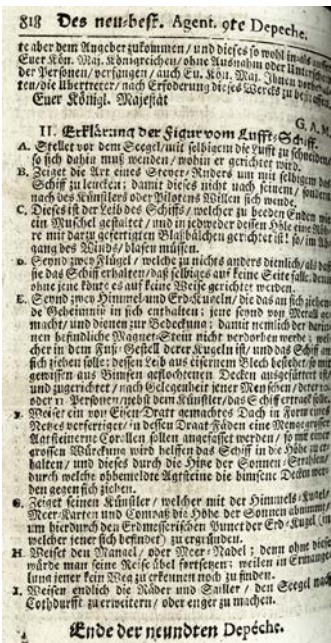 818 Des neu-best. Agent. 9te Depeche.
te aber dem Angeber zukommen / und dieses so wohl in als ausser
Euer Kön. Maj. Königreichen / ohne Ausnahm oder Unterschied
der Personen / verfangen / auch Eu. Kön. Maj. Ihnen
ten / die Ubertretter / nach Erforderung dieses Wercks zu
Euer Königl. Majestät
G. A. L.
II. Erklärung der Figur vom Lufft-Schiff.
A. Stellet vor dem Seegel / mit selbigem die Lufft zu schneiden /
so sich dahin muß wenden / wohin er gerichtet wird.
B. Zeiget die Art eines Stever-Ruders um mit selbigem das
Schiff zu lencken; damit dieses nicht nach seinem / sondern
nach des Künstlers oder Pilotens Willen sich wende.
C. Dieses ist der Leib des Schiffs / welcher zu beeden Enden wie
ein Muschel gestaltet / und in jedweder dessen Höle eine Röh-
re mit darzu gefertigten Blasbälchen gerichtet ist! so / im Ab-
gang des Winds / blasen müssen.
D. Seynd zwey Flügel / welche zu nichts anders dienlich / als daß
sie das Schiff erhalten / daß selbiges auf keine Seite falle, denn
ohne jene könte es auf keine Weise gerichtet werden.
E. Seynd zwey Himmel- und Erd-Kugeln / die das an sich ziehen-
de Geheimniß in sich enthalten; jene seynd von Metall ge-
macht / und dienen zur Bedeckung; damit nemlich der darin-
nen befindliche Magnet-Stein nicht verdorben werde; wel-
cher in dem Fuß-Gestell derer Kugeln ist / und das Schiff an
sich ziehen solle: dessen Leib aus eisernem Blech bestehet / so mit
gewissen aus Binsen geflochtenen Decken ausgefüttert ist /
und zugerichtet / nach Gelegenheit jener Menschen / deren 10
oder 11. Personen / nebst dem Künstler / das Schiff ertraget solle.
F. Weiset ein von Eisen-Dratt gemachtes Dach in Form eines
Netzes verfertiget / in dessen Draat-Fäden eine Menge grosser
Agtsteinerne Corellen sollen angefasset werden / so mit einer
grossen Würckung wird helffen das Schiff in die Höhe zu er-
halten / und dieses durch die Hitze der Sonnen-Strahlen /
durch welche obbemeldte Agtsteine die bimsene Decken wer-
den gegen sich ziehen.
G. Zeiget seinen Künstler / welcher mit der Himmels-Kugel /
Meer-Karten und Compaß die Höhe der Sonnen abnimmt /
um hierdurch den Erdmesserischen Punct der Erd-Kugel (in
welcher jener sich befindet) zu ergründen.
H. Weiset den Magnet / oder Meer-Nadel; denn ohne diese
würde man seine Reise übel fortsetzen; weilen in Ermang-
lung jener kein Weg zu erkennen noch zu finden.
I. Weisen endlich die Räder und Sailler / den Seegel nach
Nothdurfft zu erweitern / oder enger zu machen.
Ende der neundten Depeche.